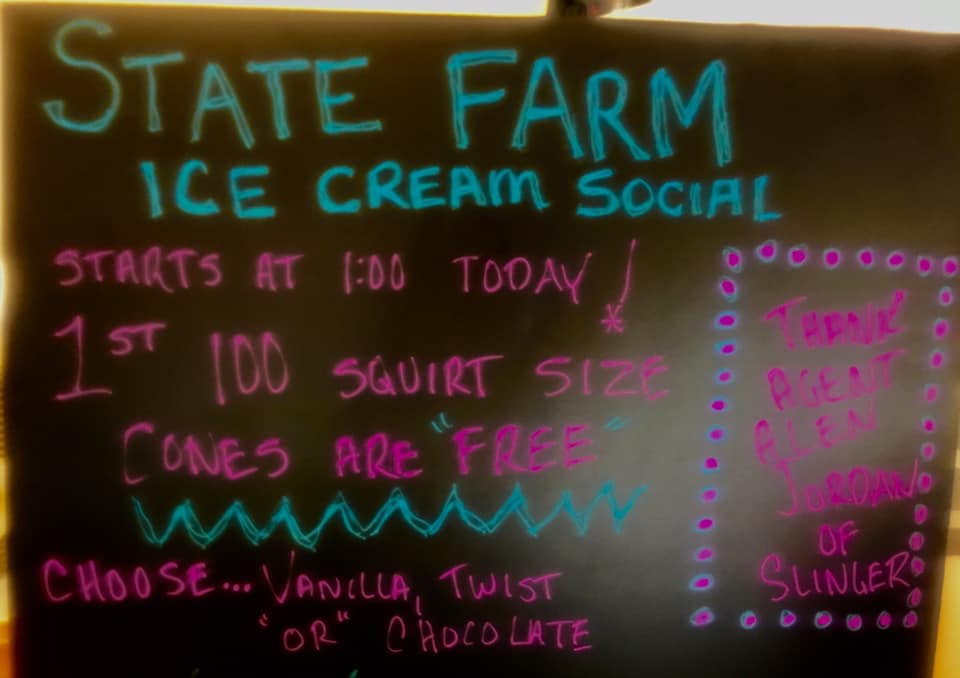 STATE FARM
ICE CREAM SOCIAL
STARTS AT 1:00 TODAY!
1ST 100 SQUIRT SIZE*
CONES ARE "FREE"
CHOOSE... VANILLA, TWIST
"OR" CHOCOLATE
THANK
AGENT
ALEN
JORDAN
OF
SLINGER